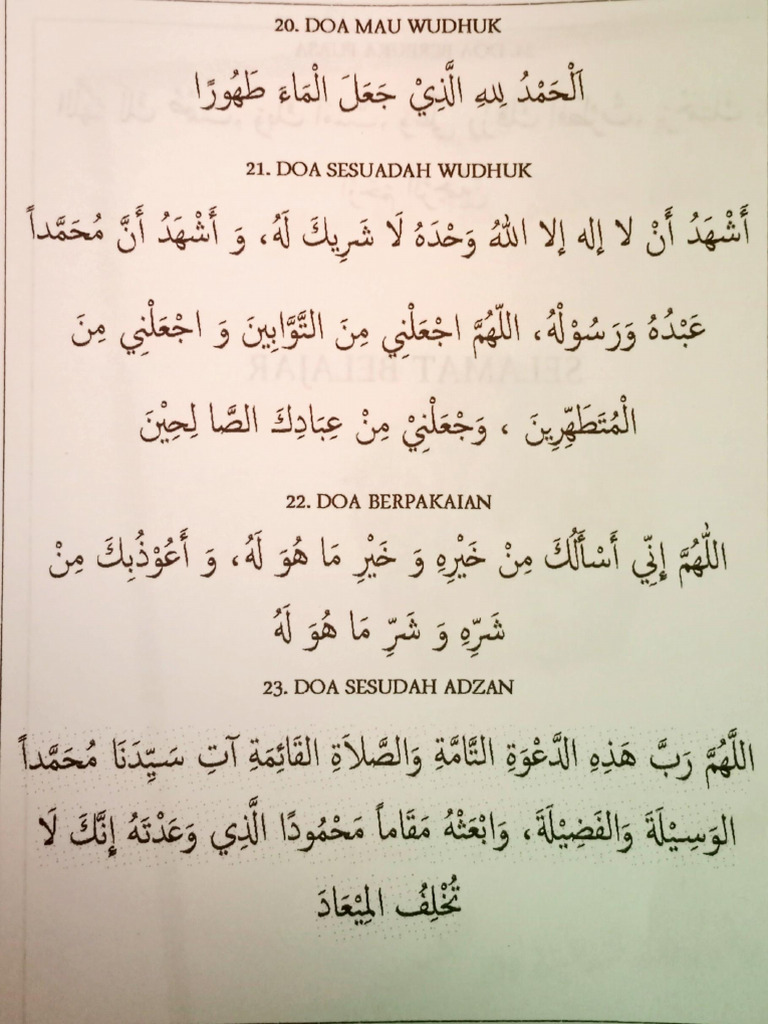 20. DOA MAU WUDHUK
اَلْحَمْدُ لِلهِ الَّذِيْ جَعَلَ الْمَاءَ طَهُورًا
21. DOA SESUADAH WUDHUK
أَشْهَدُ أَنْ لا إله إلا اللهُ وَحْدَهُ لَا شَرِيكَ لَهُ، وَ أَشْهَدُ أَنَّ مُحَمَّداً
عَبْدُهُ وَرَسُوْلُهُ، اللّهُمَّ اجْعَلْنِي مِنَ التَّوَّابِينَ وَ اجْعَلْنِي مِنَ
الْمُتَطَهِّرِينَ ، وَجْعَلْنِيْ مِنْ عِبَادِكَ الصَّا لِحِيْنَ
22. DOA BERPAKAIAN
اللّٰهُمَّ إِنِّي أَسْأَلُكَ مِنْ خَيْرِهِ وَ خَيْرِ مَا هُوَ لَهُ، وَ أَعُوْذُبِكَ مِنْ
شَرِّهِ وَ شَرِّ مَا هُوَ لَهُ
23. DOA SESUDAH ADZAN
اللَّهُمَّ رَبَّ هَذِهِ الدَّعْوَةِ التَّامَّةِ وَالصَّلاَةِ القَائِمَةِ آتِ سَيِّدَنَا مُحَمَّداً
الوَسِيْلَةَ وَالفَضِيْلَةَ، وَابْعَثْهُ مَقَاماً مَحْمُودًا الَّذِي وَعَدْتَهُ إِنَّكَ لَا
تُخْلِفُ المِيْعَادَ